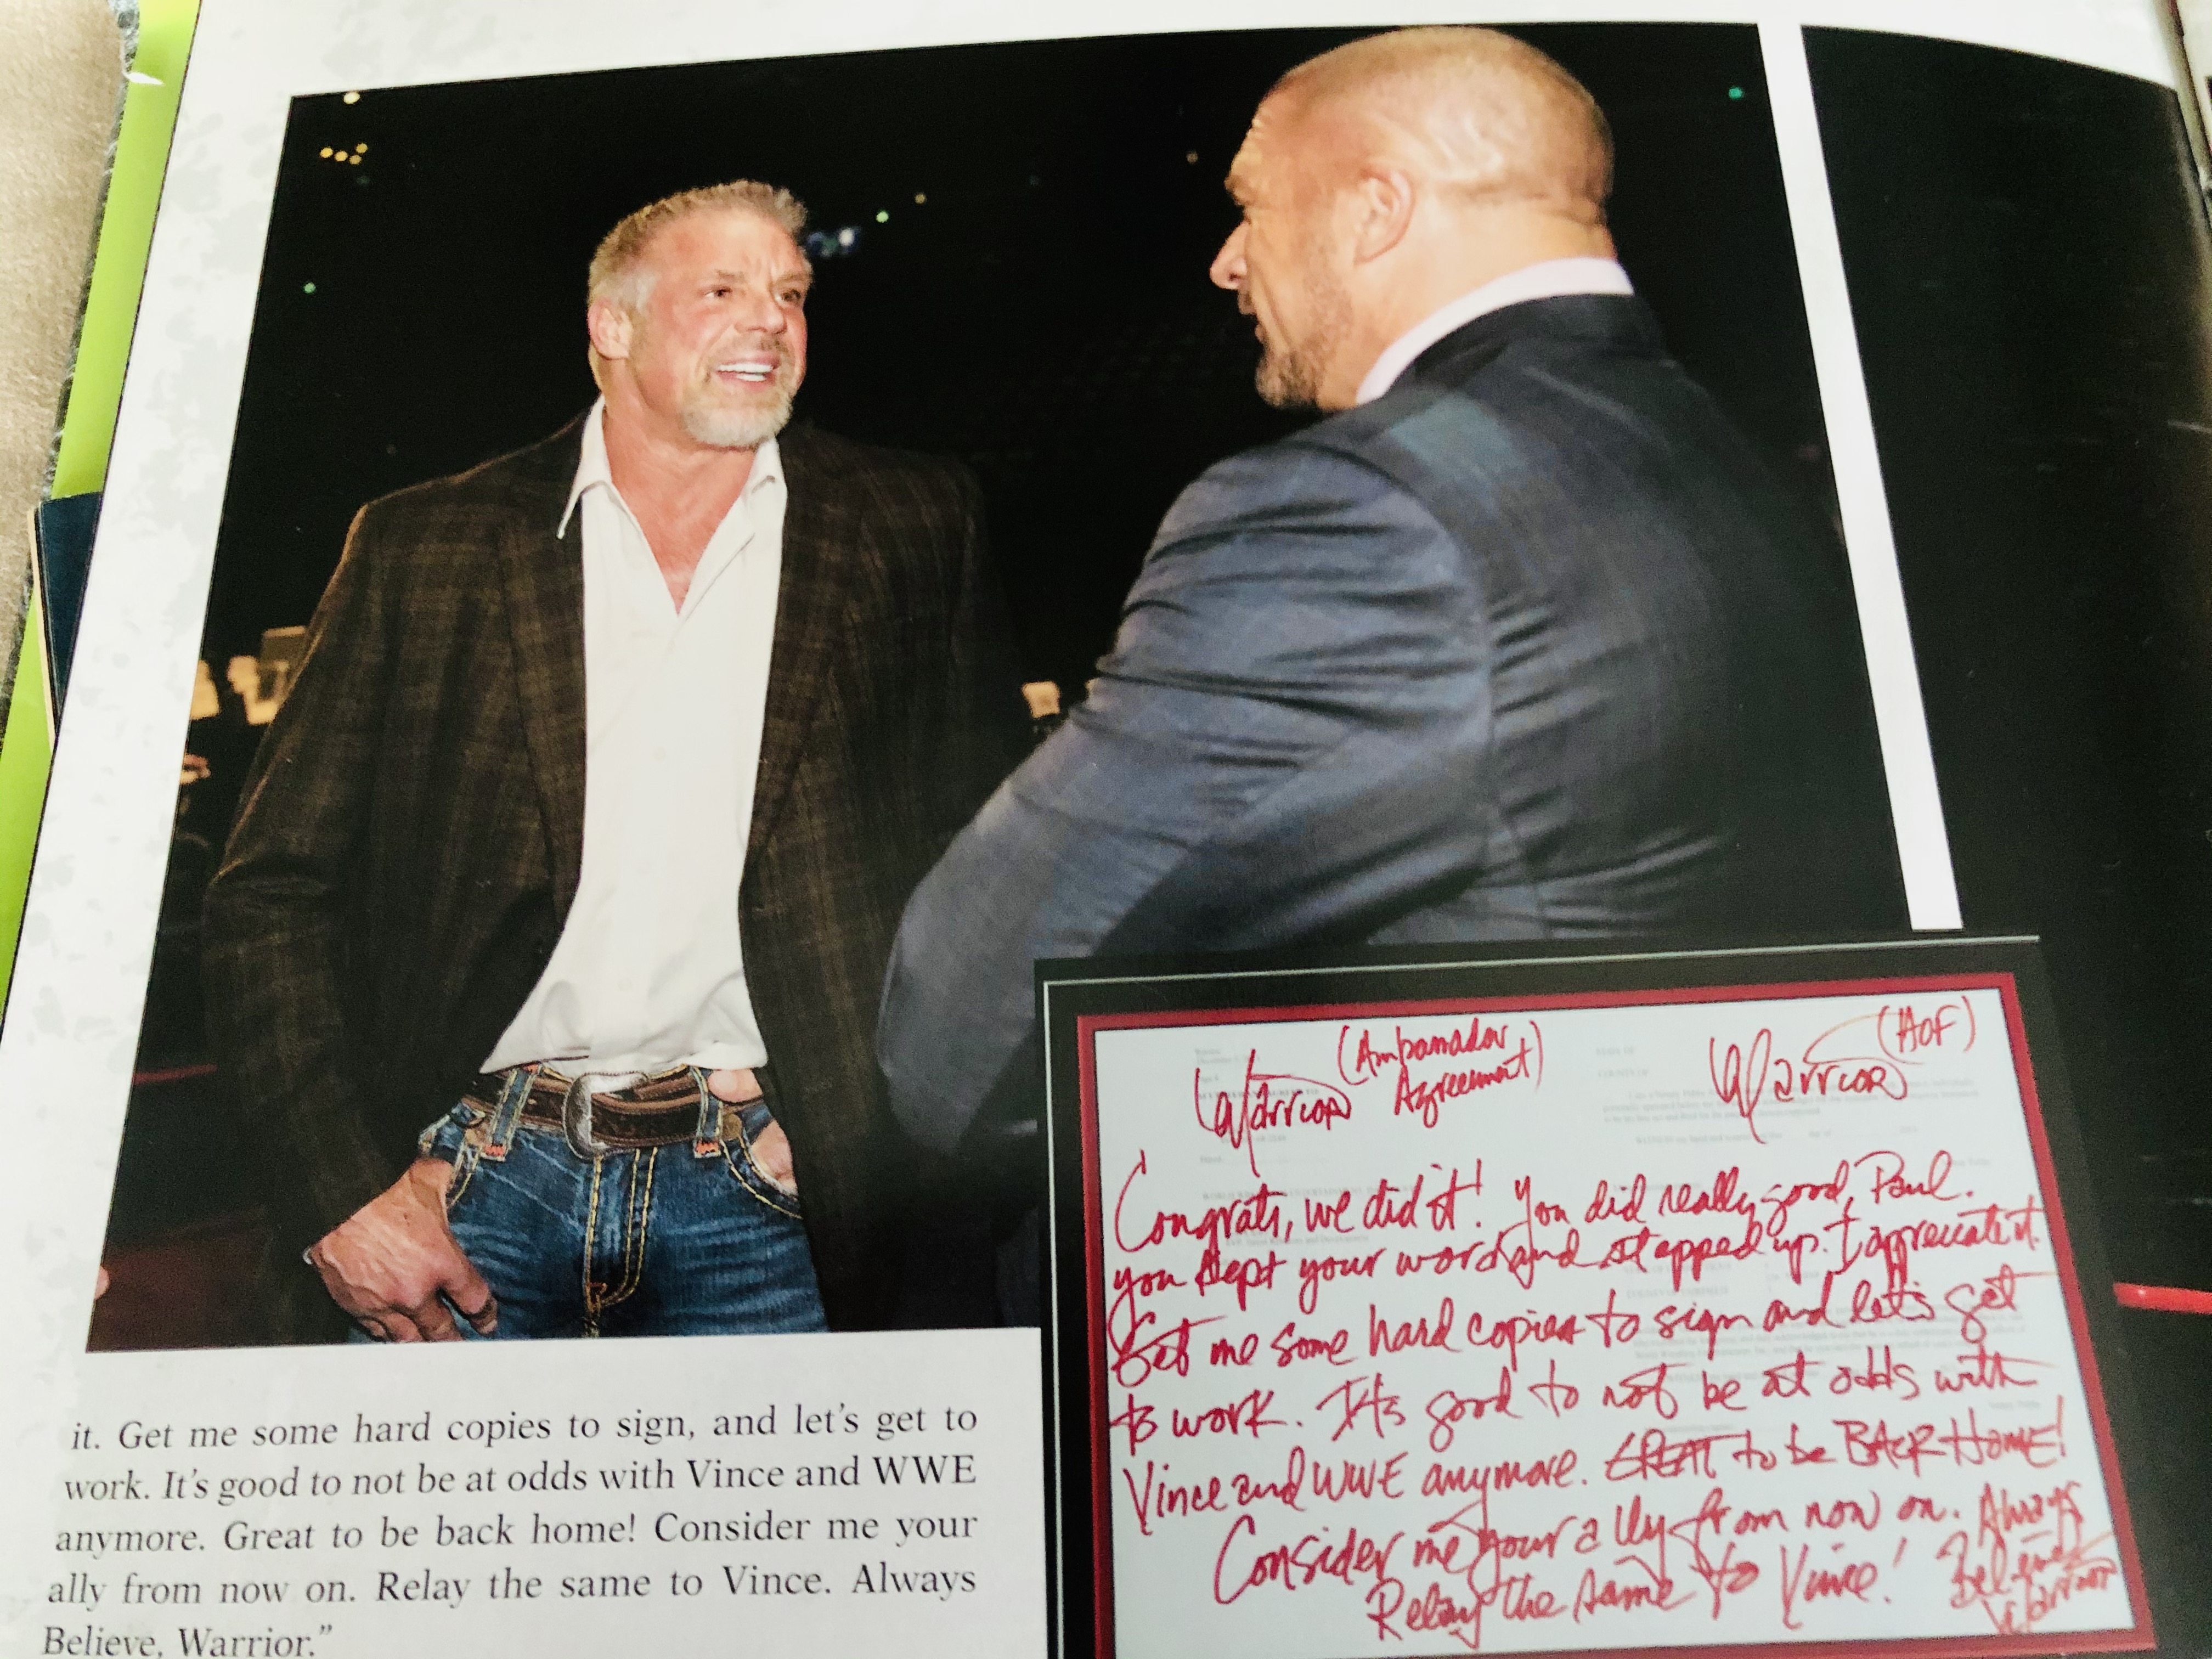 it. Get me some hard copies to sign, and let's get to
work. It's good to not be at odds with Vince and WWE
anymore. Great to be back home! Consider me your
ally from now on. Relay the same to Vince. Always
Believe, Warrior."
Warrior (Ambassador
Agreement)
Warrior (HOF)
Congrats, we did it! You did really good, Paul.
you kept your word and stepped up. I appreciate it.
Get me some hard copies to sign and let's get
to work. It's good to not be at odds with
Vince and WWE anymore. GREAT to be BACK HOME!
Consider me your ally from now on. Always
Relay the same to Vince! Believe
Warrior